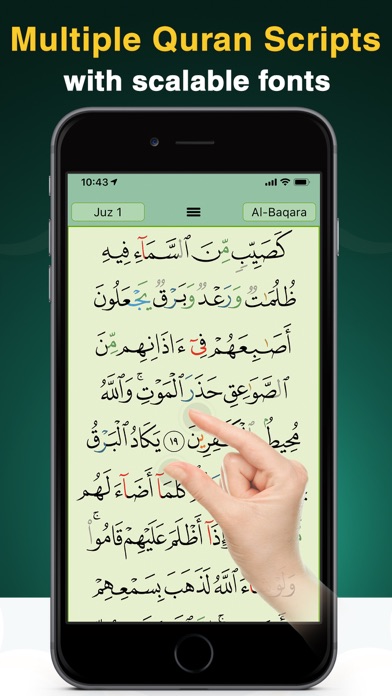 Multiple Quran Scripts
with scalable fonts
10:43
Juz 1
Al-Baqara
كَصَيِّبٍ مِّنَ ٱلسَّمَآءِ فِيهِ
ظُلُمَٰتٌ وَرَعْدٌ وَبَرْقٌ يَجْعَلُونَ
أَصَٰبِعَهُمْ فِىٓ ءَاذَانِهِم مِّنَ
ٱلصَّوَٰعِقِ حَذَرَ ٱلْمَوْتِ ۚ وَٱللَّهُ
مُحِيطٌۢ بِٱلْكَٰفِرِينَ ١٩ يَكَادُ ٱلْبَرْقُ
كُلَّمَآ أَضَآءَ لَهُم
أَظْلَمَ عَلَيْهِمْ قَامُوا۟ ۚ
وَلَوْ ٱللَّهُ لَذَهَبَ بِسَمْعِهِمْ